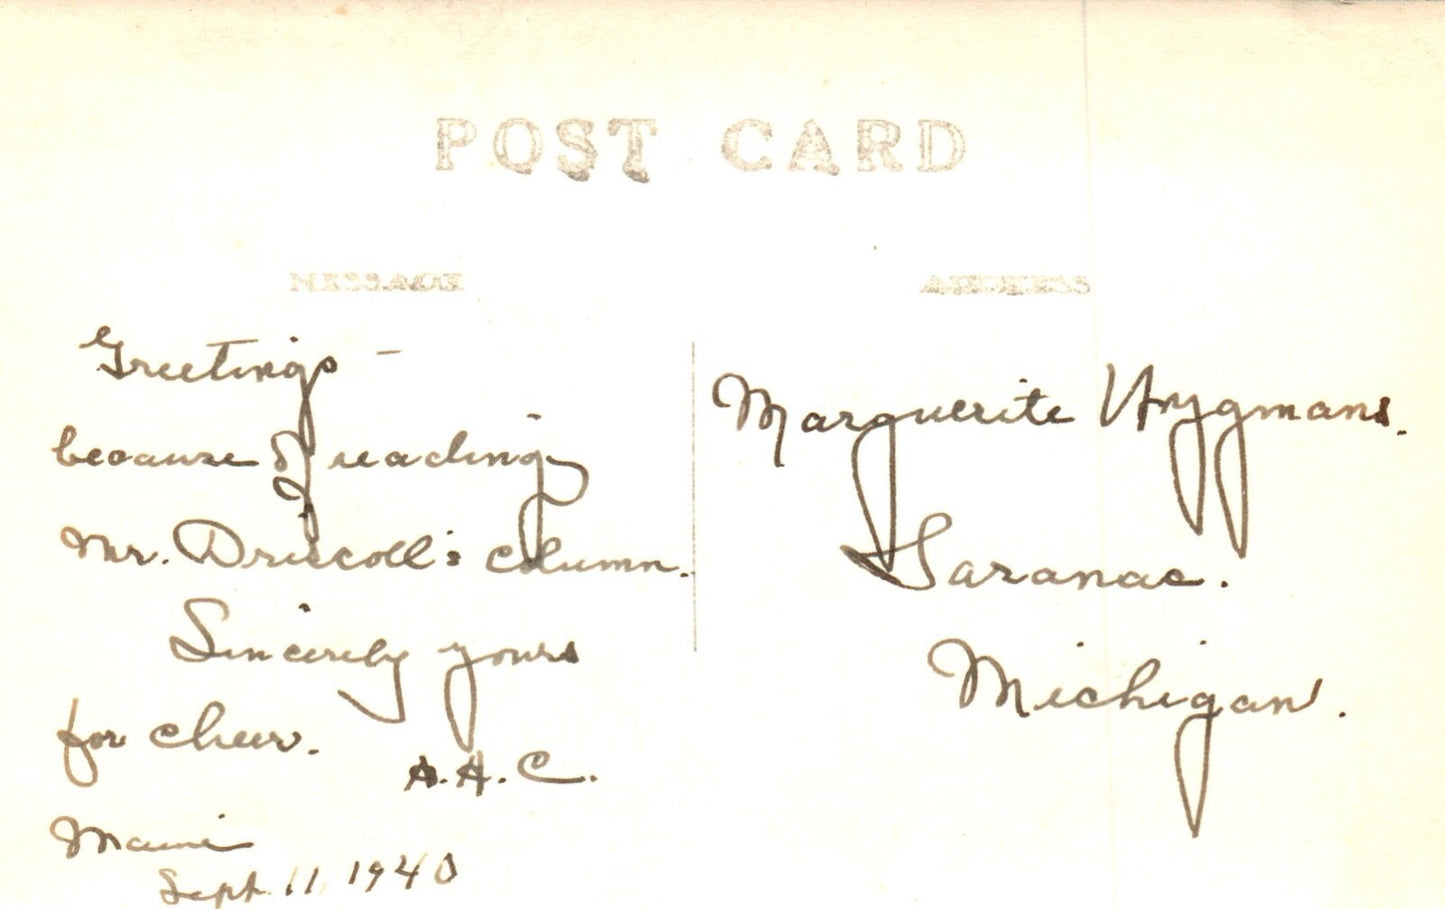 POST CARD
MESSAGE
ADDRESS
Greetings –
because of reading
Mr. Driscoll's column.
Sincerely yours
for cheer.
A.H.C.
Maine
Sept. 11, 1940
Marguerite
Saranac.
Michigan.